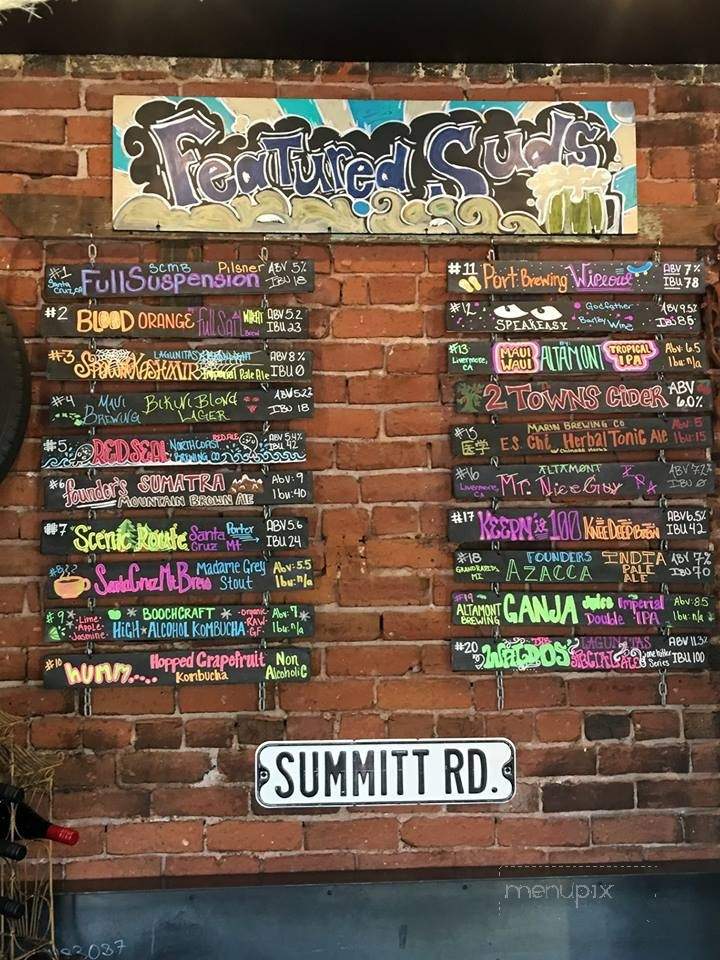 Featured Suds
#1 Santa Cruz, CA Full Suspension SCMB Pilsner ABV 5% IBU 18
#2 BLOOD ORANGE Full Sail WHEAT Brew ABV 5.2 IBU 23
#3 LAGUNITAS Imperial Pale Ale ABV 8% IBU 0
#4 MAUI BREWING BIKINI BLOND LAGER ABV 5.2% IBU 18
#5 RED SEAL RED ALE NORTH COAST BREWING CO ABV 5.4% IBU 42
#6 founder's SUMATRA MOUNTAIN BROWN ALE Abv: 9 Ibu: 40
#7 Scenic Route Santa Cruz Mt Porter ABV 5.6 IBU 24
#8 Santa Cruz Mt Brew Madame Grey Stout Abv: 5.5 Ibu: n/a
#9 Lime Apple Jasmine BOOCHCRAFT HIGH ALCOHOL KOMBUCHA Organic RAW GF Abv: 7% Ibu: n/a
#10 HUMM.... Hopped Grapefruit Kombucha Non Alcoholic
#11 Port Brewing Wipeout ABV 7% IBU 78
#12 SPEAKEASY Godfather Barley Wine ABV 9.5% IBU 86
#13 Livermore, CA MAUI WAUI ALTAMONT TROPICAL IPA Abv: 6.5 Ibu: n/a
2 TOWNS CIDER ABV 6.0%
#15 医学 MARIN BREWING CO E.S. Chi Herbal Tonic Ale Abv: 5 Ibu: 15
#16 Livermore, CA ALTAMONT Mr. Nice Guy ABV 7.2% IBU 0
#17 KEEPN iE 100 KNEE DEEP BREW ABV 6.5% IBU 42
#18 GRAND RAPIDS MI FOUNDERS AZACCA INDIA PALE ALE ABV 7% IBU 70
#19 ALTAMONT BREWING GANJA Juice Imperial Double IPA Abv: 8.5 Ibu: n/a
#20 THE WALDOS' SPECIAL ALE LAGUNITAS One hitter Series ABV 11.3% IBU 100
SUMMITT RD.
menupix